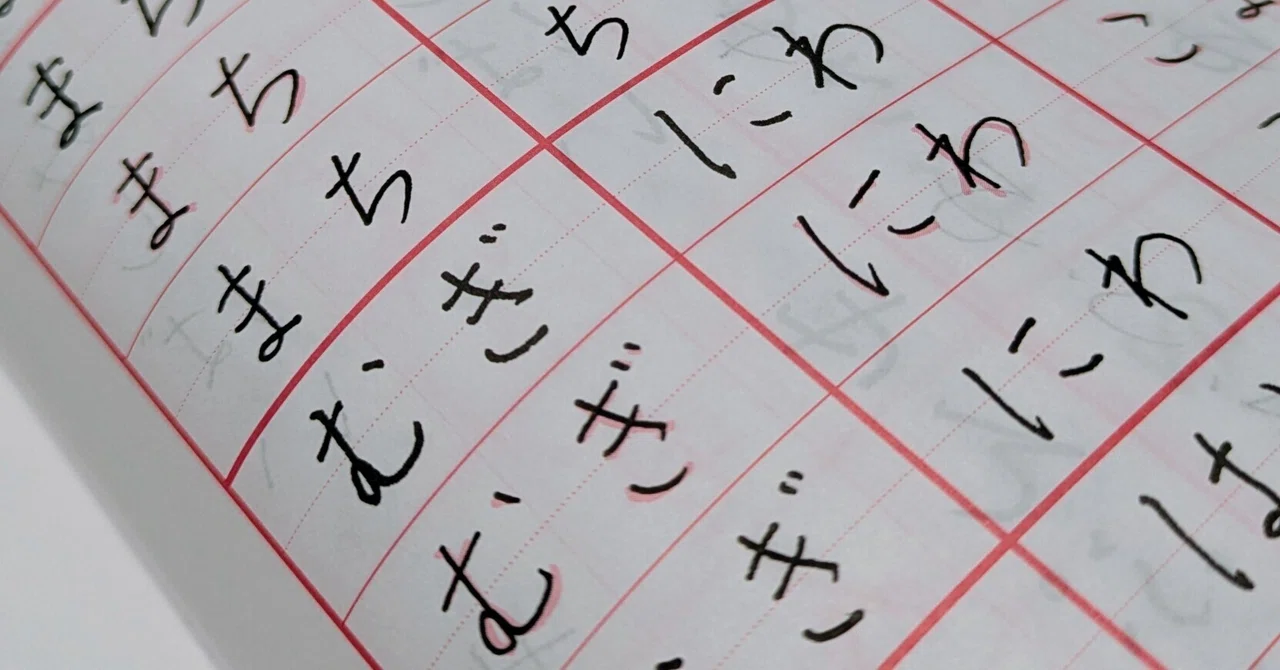 まち
まち
まち
むぎ
むぎ
ぎ
ち
にわ
にわ
にわ
は